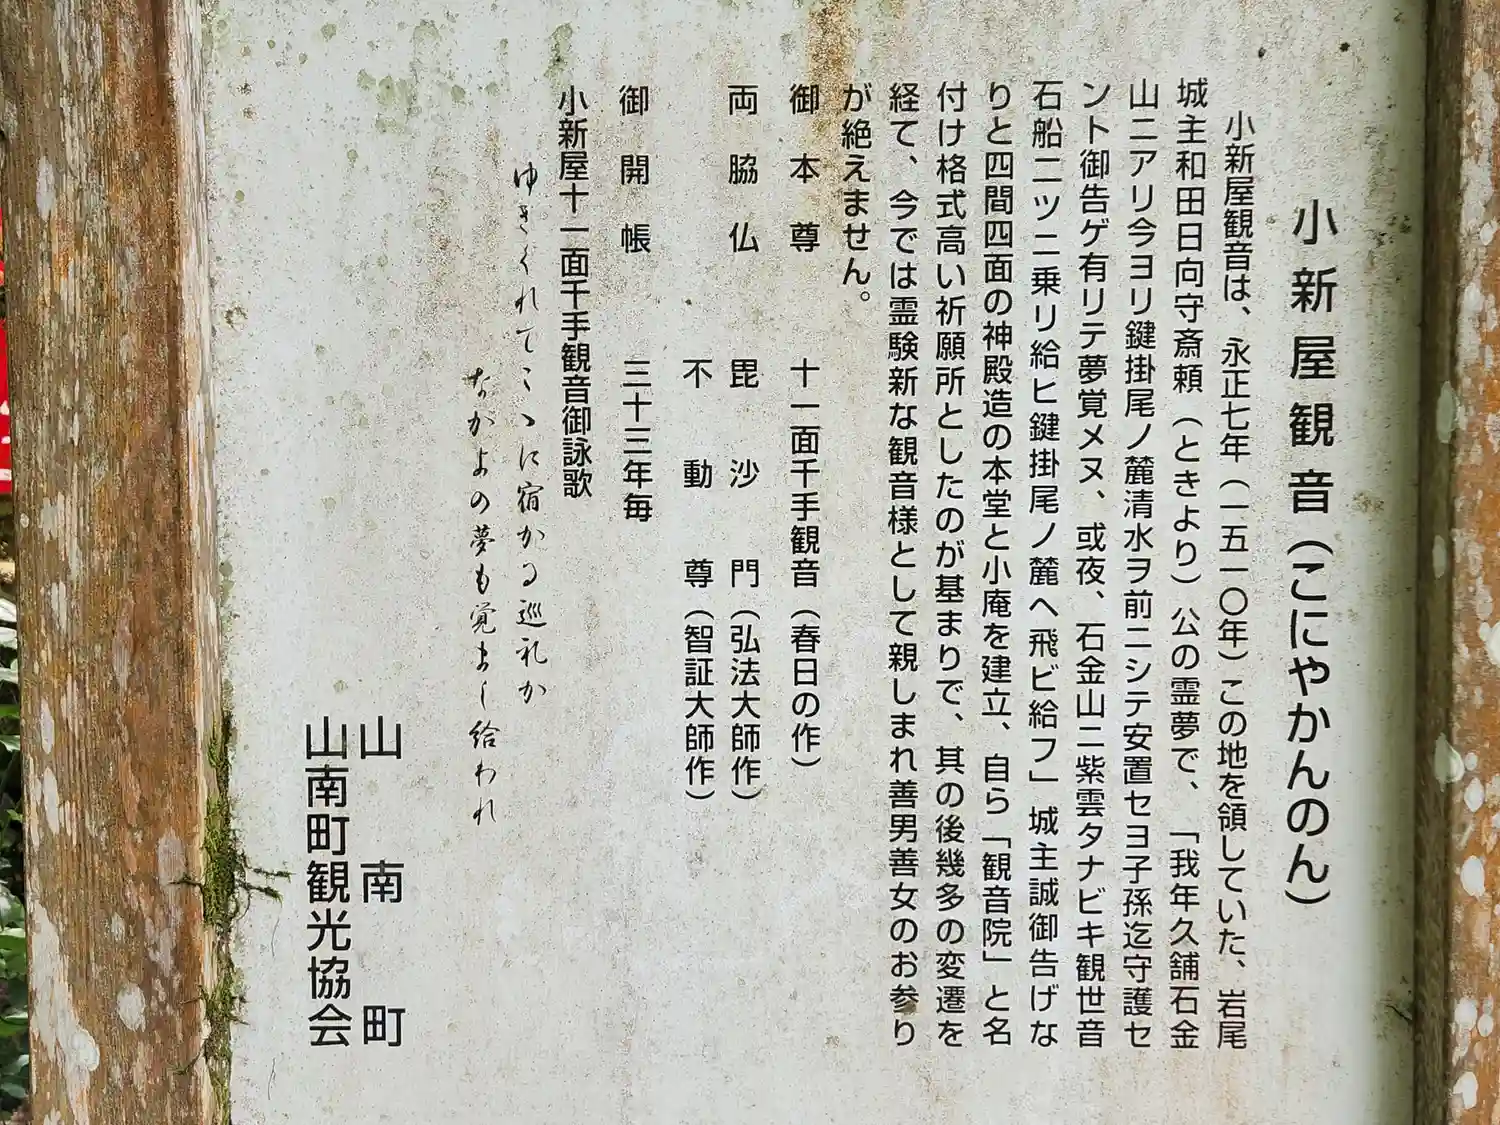 小新屋観音（こにやかんのん）
小新屋観音は、永正七年（一五一〇年）この地を領していた、岩尾
城主和田日向守斎頼（ときより）公の霊夢で、「我年久舗石金
山ニアリ今ヨリ鍵掛尾ノ麓清水ヲ前ニシテ安置セヨ子孫迄守護セ
ント御告ゲ有リテ夢覚メヌ、或夜、石金山ニ紫雲タナビキ観世音
石船ニツニ乗リ給ヒ鍵掛尾ノ麓ヘ飛ビ給フ」城主誠御告げな
りと四間四面の神殿造の本堂と小庵を建立、自ら「観音院」と名
付け格式高い祈願所としたのが基まりで、其の後幾多の変遷を
経て、今では霊験新な観音様として親しまれ善男善女のお参り
が絶えません。
御本尊　十一面千手観音（春日の作）
両脇仏　毘沙門（弘法大師作）
不動尊（智証大師作）
御開帳　三十三年毎
小新屋十一面千手観音御詠歌
ゆきくれてこゝに宿かる巡礼か
ながよの夢も覚まし給われ
山南町
山南町観光協会